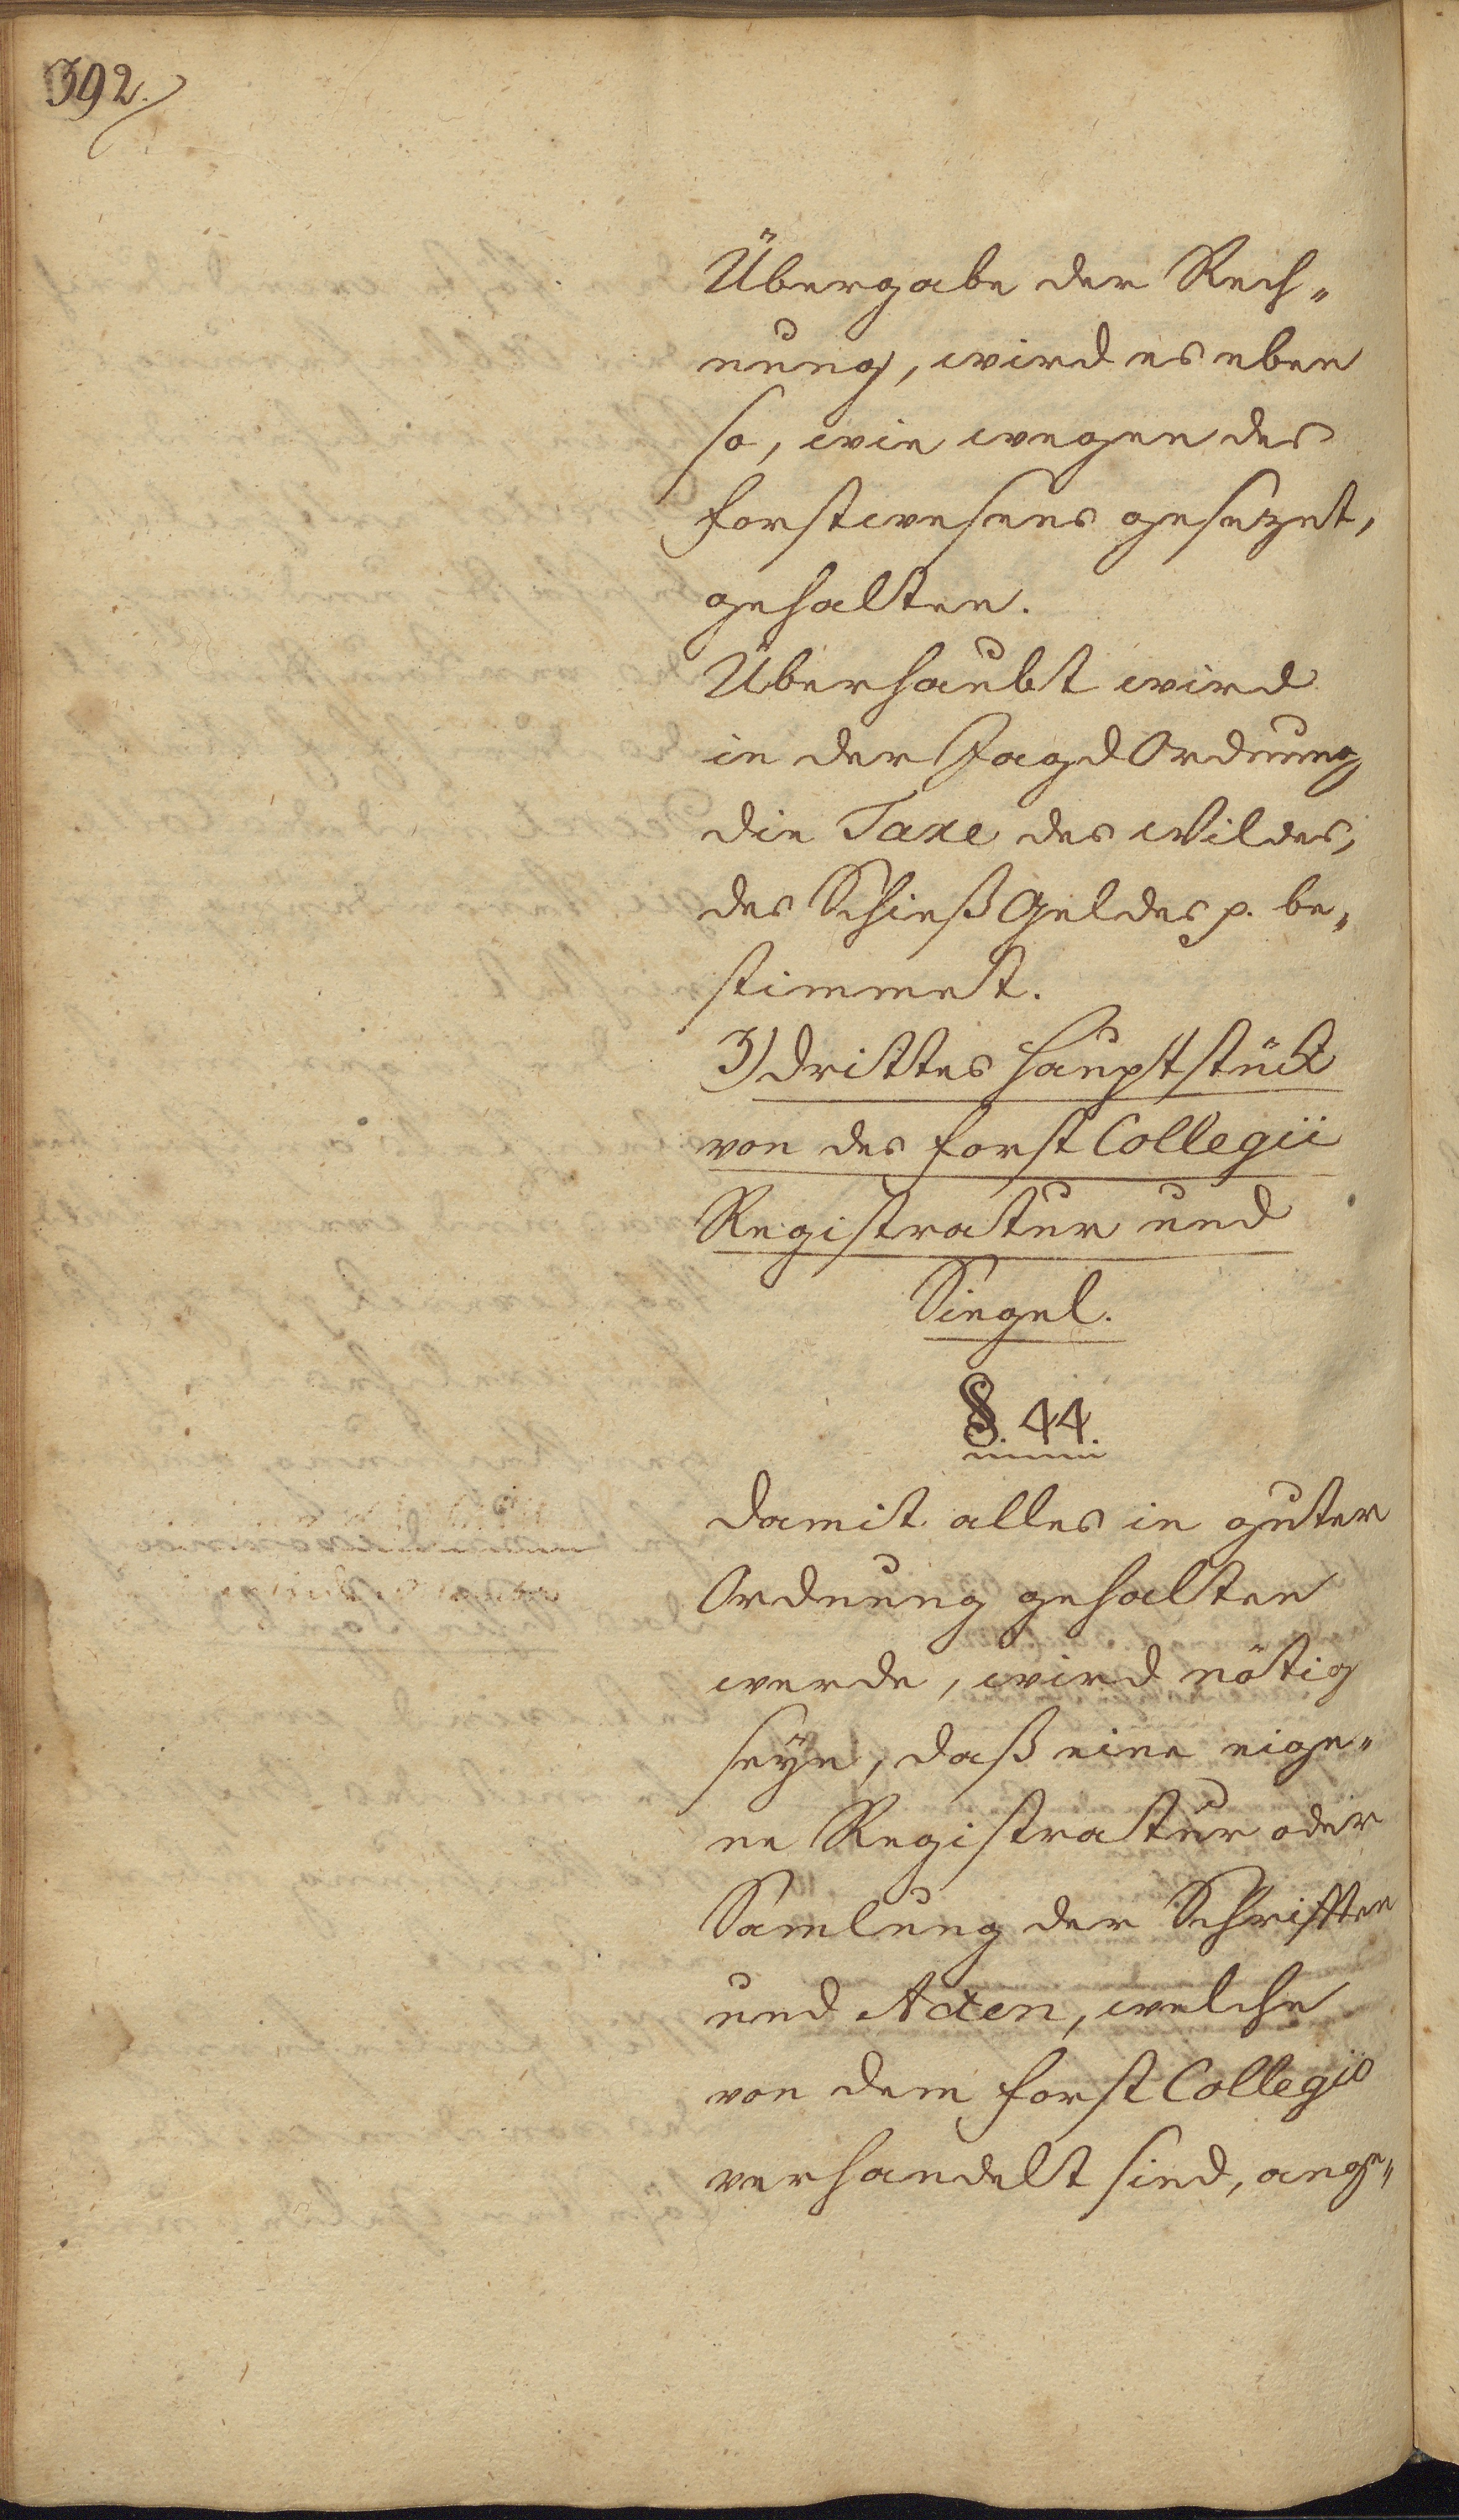 392.
Übergabe der Rech„
nung, wird es eben
so, wie wegen des
Forstwesens gesezet,
gehalten.
Überhaubt wird
in der Jagd Ordnung
die Taxe des Wildes,
des Schieß Geldes p. be„
stimmet.
3) drittes Hauptstück
von des Forst Collegii
Registratur und
Siegel.
§. 44.
Damit alles in guter
Ordnung gehalten
werde, wird nötig
seÿn, daß eine eige„
ne Registratur oder
Samlung der Schrifften
und Acten, welche
von dem Forst Collegio
verhandelt sind, ange„